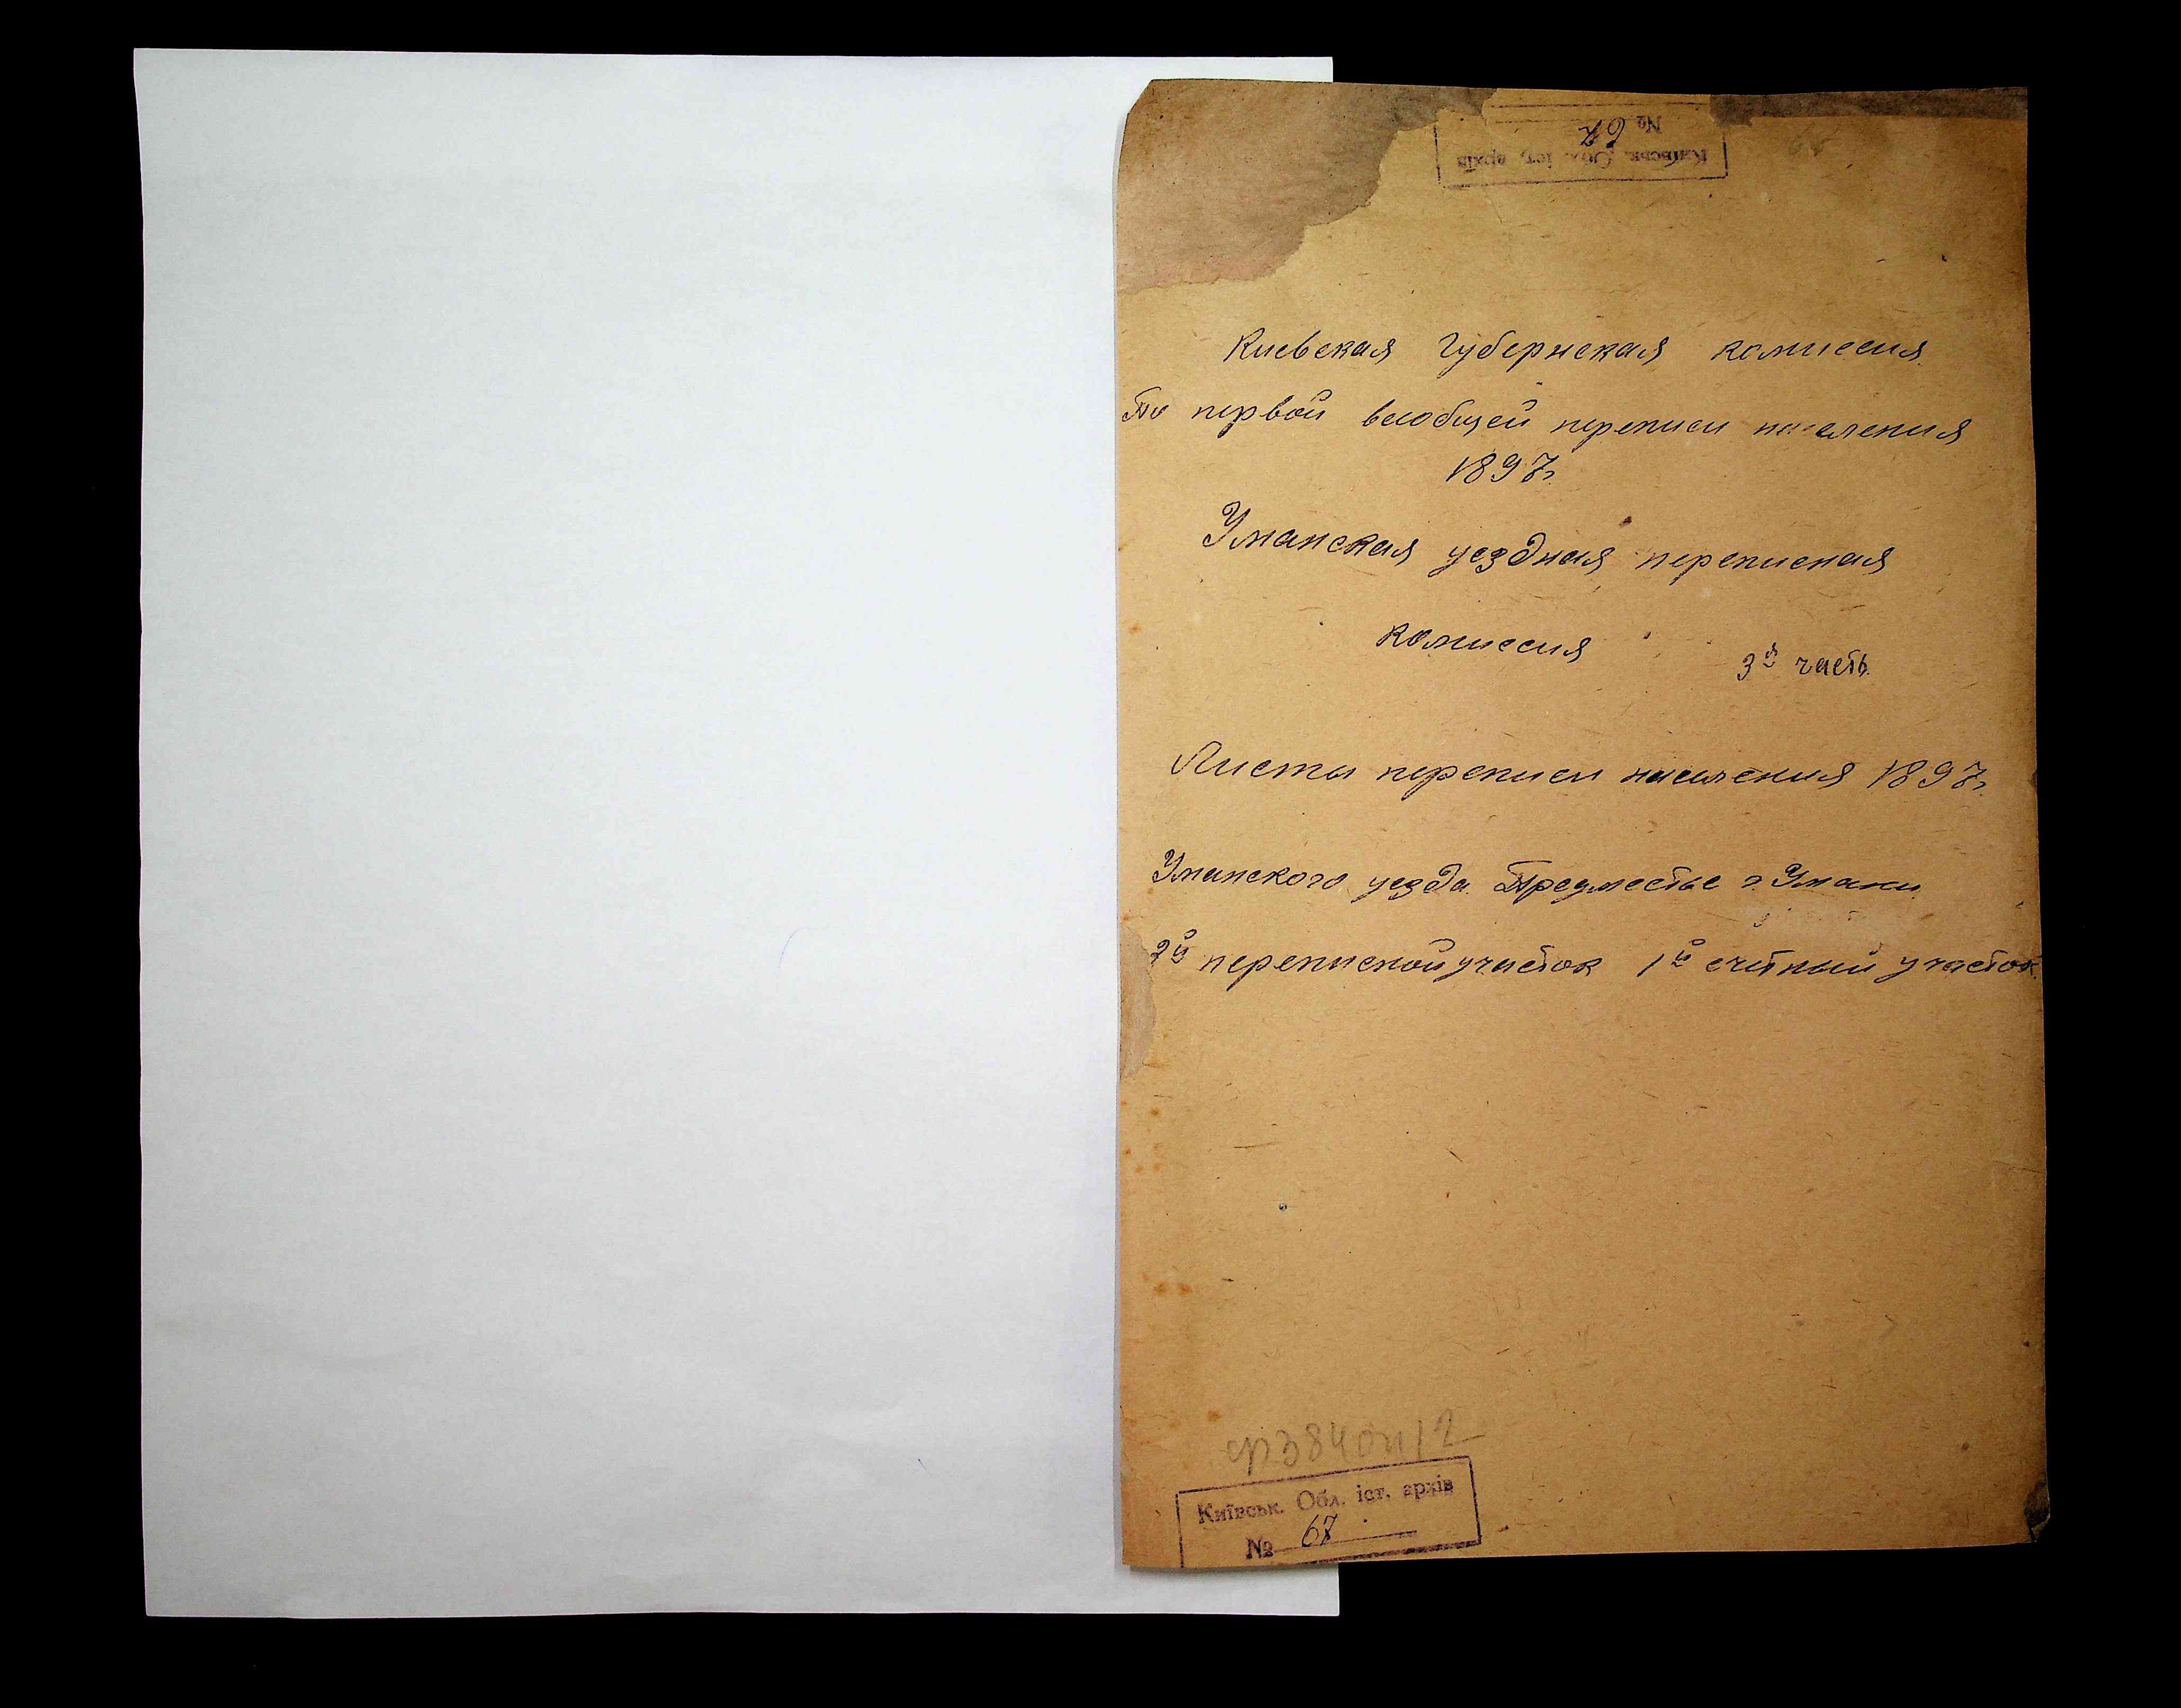 № 67
Київськ. Обл. іст. архів
Киевская Губернская комиссия
По первой всеобщей переписи населения
1897г.
Уманская уездная переписная
комиссия
3я часть.
Листы переписи населения 1897г.
Уманского уезда. Предместье г. Умани.
2й переписной участок 1й счётный участок.
ф 384 оп 2
Київськ. Обл. іст. архів
№ 67